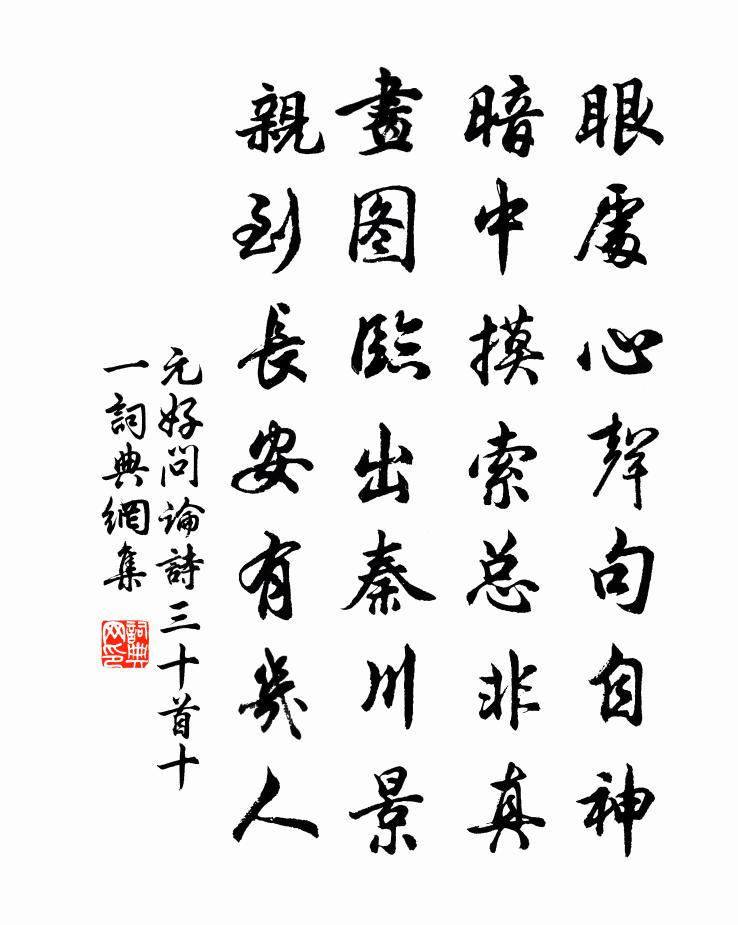 眼處心聲句自神
暗中摸索总非真
畫图臨出秦川景
親到長安有幾人
元好问論詩三十首十
一詞典網集
詞典
网印